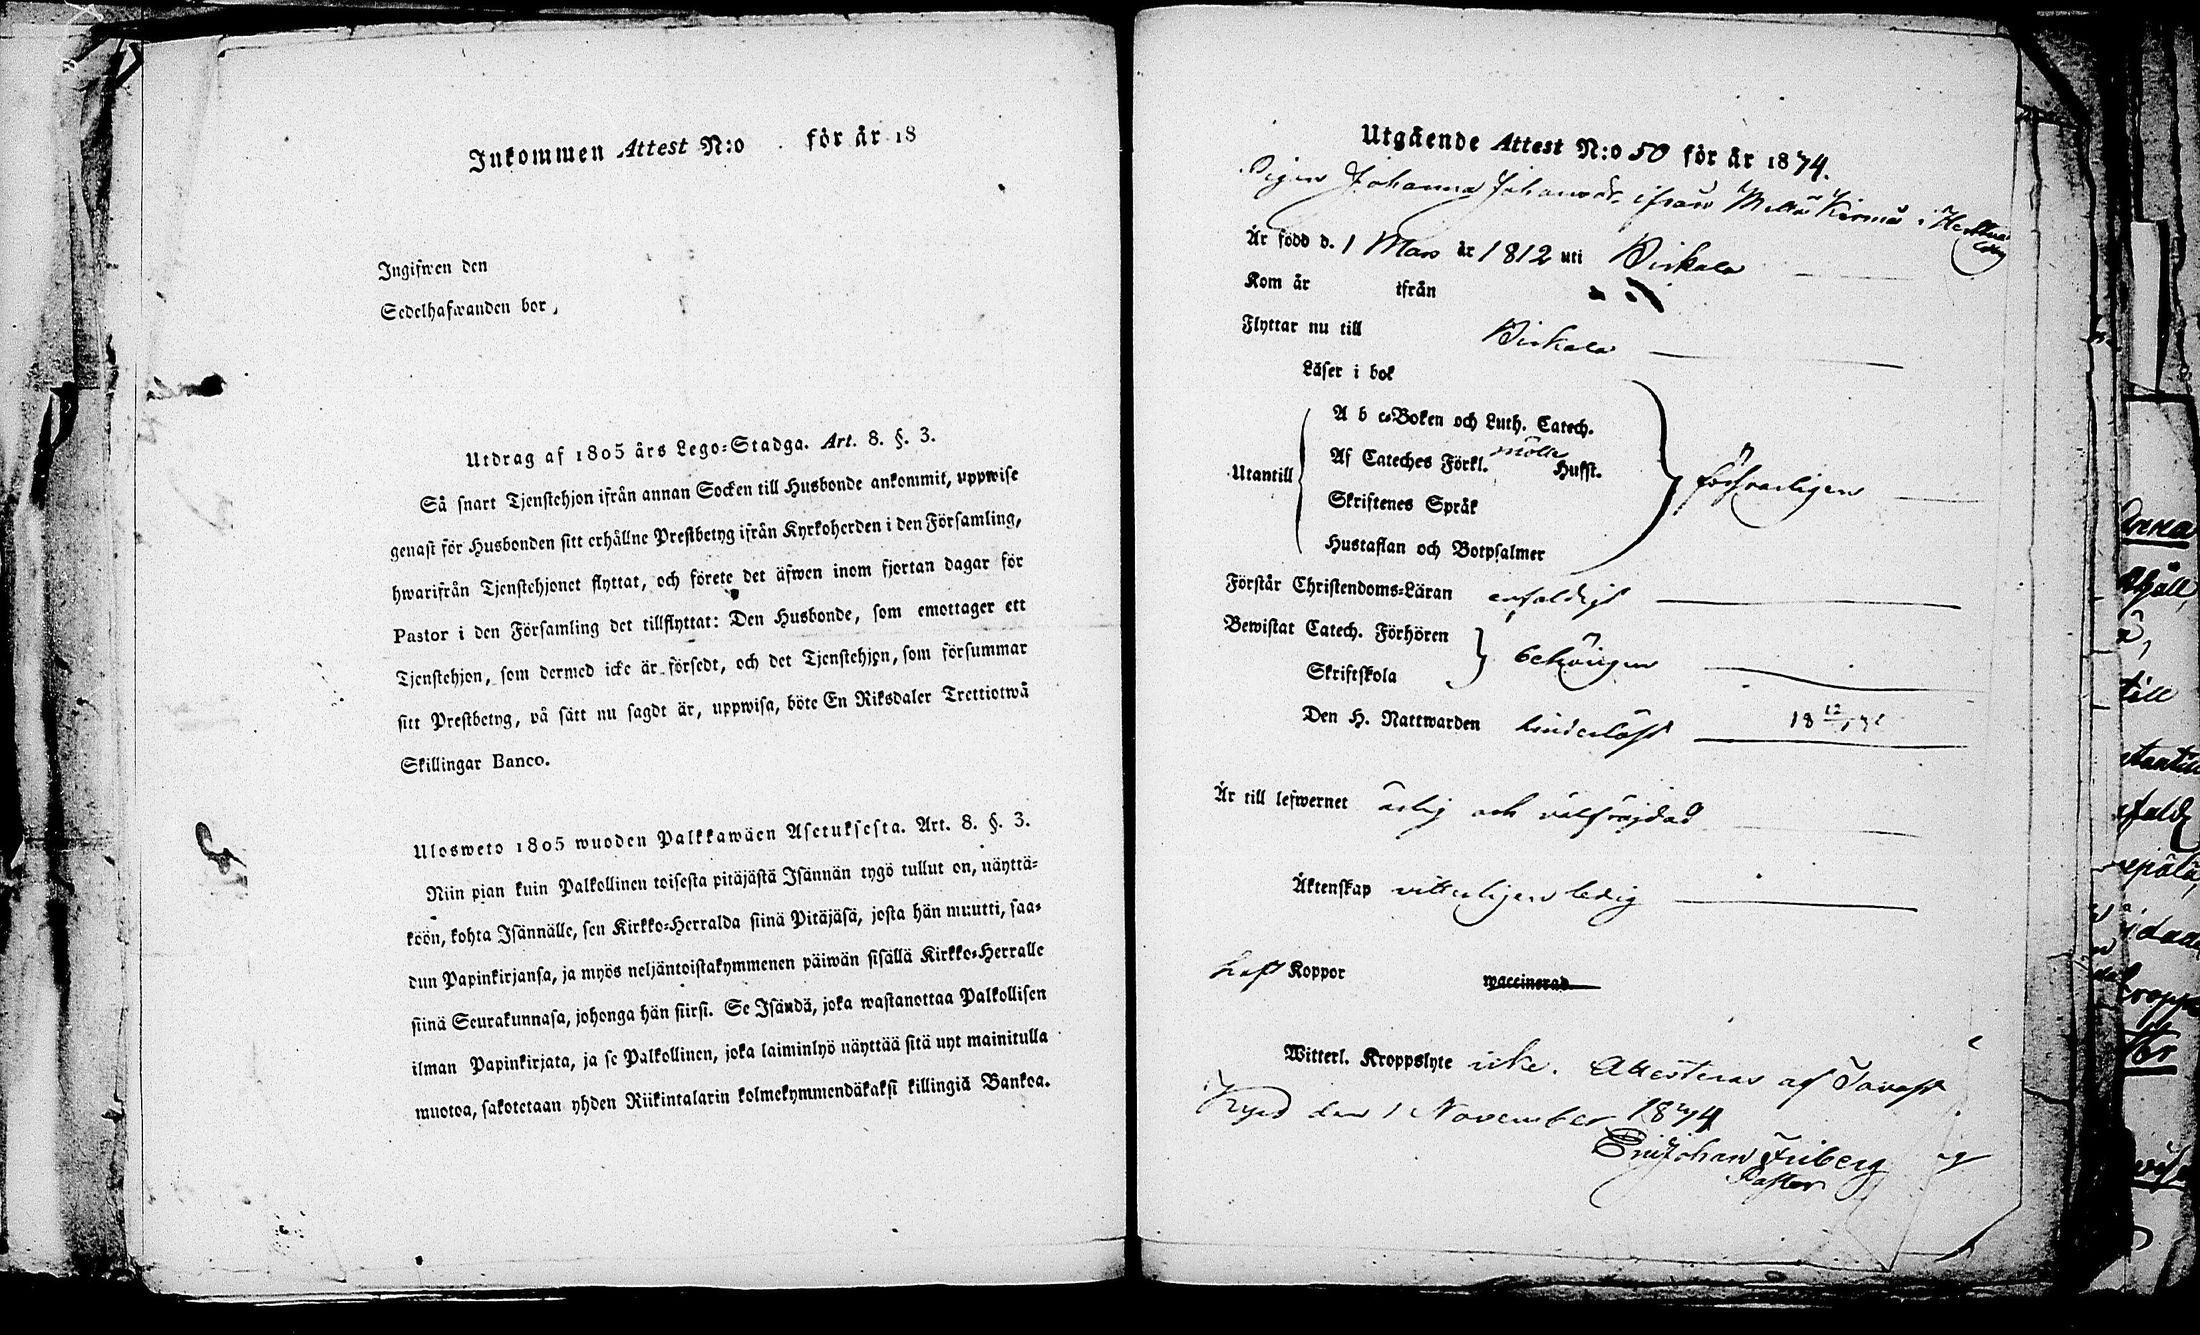 Inkommen Attest N:o för år 18
Ingifwen den
Sedelhafwanden bor,
Utdrag af 1805 års Lego-Stadga. Art. 8. §. 3.
Så snart Tjenstehjon ifrån annan Socken till Husbonde ankommit, uppwise
genast för Husbonden sitt erhållne Prestbetyg ifrån Kyrkoherden i den Församling,
hwarifrån Tjenstehjonet flyttat, och förete det äfwen inom fjortan dagar för
Pastor i den Församling det tillflyttat: Den Husbonde, som emottager ett
Tjenstehjon, som dermed icke är försedt, och det Tjenstehjon, som försummar
sitt Prestbetyg, på sätt nu sagdt är, uppwisa, böte En Riksdaler Trettiotwå
Skillingar Banco.
Ulosweto 1805 wuoden Palkkawäen Asetuksesta. Art. 8. §. 3.
Niin pian kuin Palkollinen toisesta pitäjästä Isännän tygö tullut on, näyttä-
köön, kohta Isännälle, sen Kirkko-Herralda siinä Pitäjäsä, josta hän muutti, saa-
dun Papinkirjansa, ja myös neljäntoistakymmenen päiwän sisällä Kirkko-Herralle
siinä Seurakunnasa, johonga hän siirsi. Se Isändä, joka wastanottaa Palkollisen
ilman Papinkirjata, ja se Palkollinen, joka laiminlyö näyttää sitä nyt mainitulla
muotoa, sakotetaan yhden Riikintalarin kolmekymmendäkaksi killingiä Bankoa.
Utgående Attest N:o 50 för år 1874.
Pigan Johanna Johansdr. ifrån Kirmus i
Är född d. 1 Mars år 1812 uti Birkala
Kom år ifrån
Flyttar nu till Birkala
Läser i bok
A b c-Boken och Luth. Catech.
Utantill Af Cateches Förkl. Möllers Huffst. försvarligen
Skriftenes Språk
Hustaflan och Botpsalmer
Förstår Christendoms-Läran enfaldigt
Bewistat Catech. Förhören behörigen
Skriftskola
Den H. Nattwarden hinderlöst 18
Är till lefwernet ärlig och välfräjdad
Äktenskap vitterligen ledig
haft Koppor waccinerad
Witterl. Kroppslyte icke. Attesteras af Tavast
Kyro den 1 November 1874
Johan Friberg
Pastor